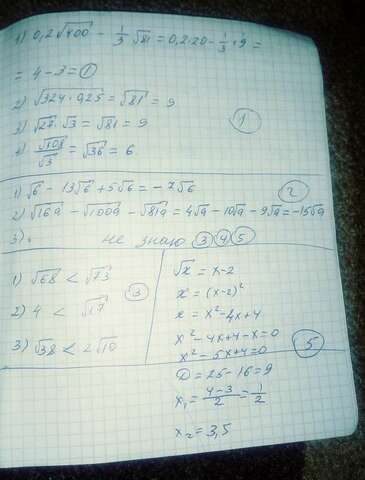 1) 0,2√400 - 1/3 √81 = 0,2·20 - 1/3 · 9 =
= 4-3 = 1
2) √324·0,25 = √81 = 9
3) √27 · √3 = √81 = 9
4) √108/√3 = √36 = 6
1
1) √6 - 13√6 + 5√6 = -7√6
2
2) √16a - √100a - √81a = 4√a - 10√a - 9√a = -15√a
3).
не знаю 3 4 5
1) √68 < √73
3
2) 4 < √17
3) √38 < 2√10
√x = x-2
x = (x-2)²
x = x²-4x+4
x²-4x+4-x=0
x²-5x+4=0
5
D = 25-16=9
x₁ = 4-3/2 = 1/2
x₂ = 3,5